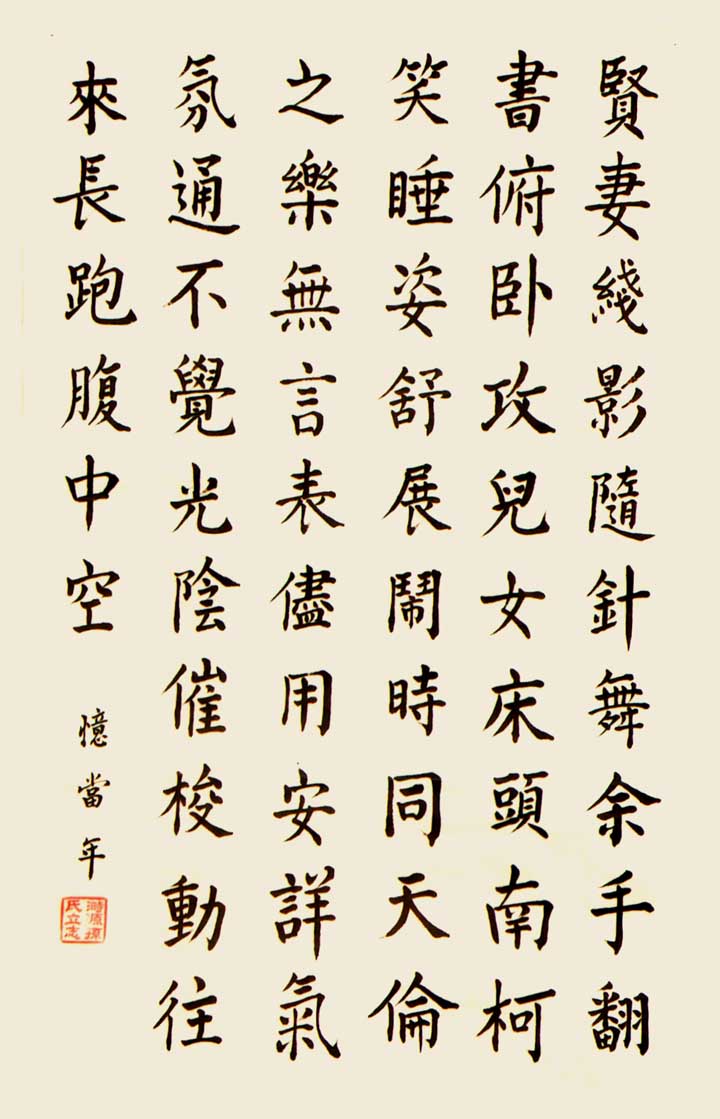 賢妻綫影隨針舞余手翻
書俯卧攻兒女床頭南柯
笑睡姿舒展鬧時同天倫
之樂無言表儘用安詳氣
氛通不覺光陰催梭動往
來長跑腹中空
憶當年